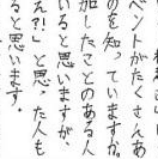 ベントがたくさんあ
のを知っていますか
加したことのある人
いると思いますが、
え?!」と思った人も
ると思います。